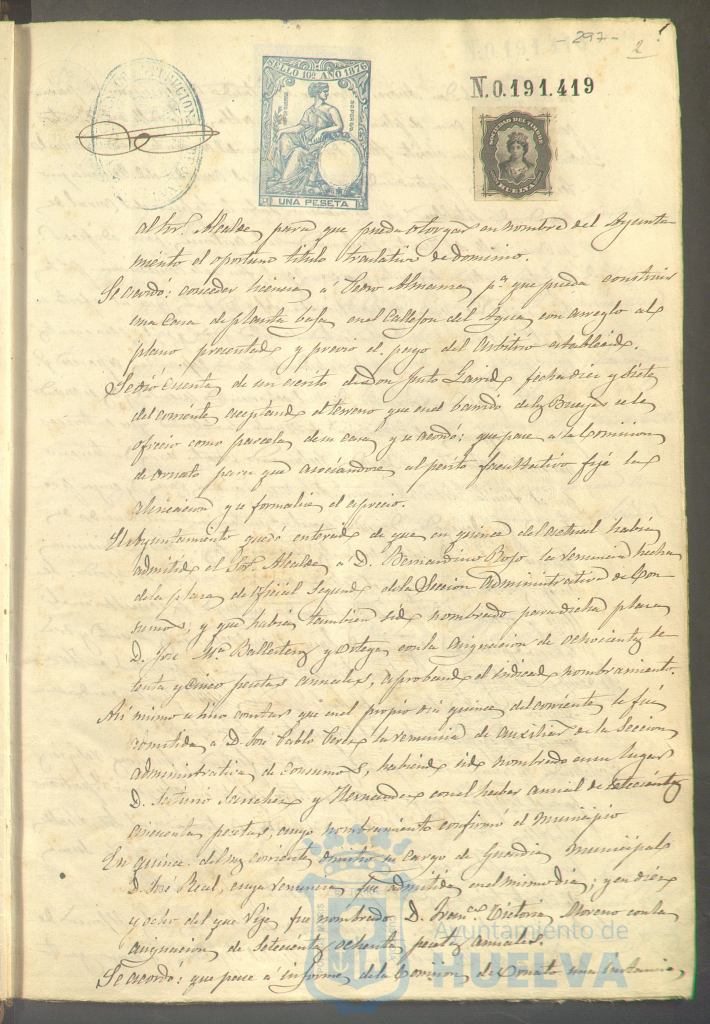 -297-
2
SELLO 10º AÑO 1876
UNA PESETA
N.0.191.419
SOCIEDAD DEL TIMBRE
HUELVA
al Sor. Alcalde, para que pueda otorgar en nombre del Ayunta-
miento el oportuno titulo traslativo de dominio.
Se acordó: conceder licencia a Pedro Almansa pa. que pueda construir
una Casa de planta baja en el Callejon del Agua, con arreglo al
plano presentado y previo el pago del arbitrio establecido.
Se dió cuenta de un escrito de Don Justo fecha diez y siete
del corriente aceptando el terreno que en el barrio de la se le
ofrecio como parcela de su casa y se acordó: que pase a la Comision
de ornato para que asociandose al perito facultativo fije la
alineacion y se formalice el aprecio.
El Ayuntamiento quedó enterado de que en quince del actual habia
admitido el Sor. Alcalde a D. Bernardino Rojo la renuncia hecha
de la plaza de Oficial Segundo de la Seccion administrativa de Con-
sumos, y que habia tambien sido nombrado para dicha plaza
D. José Ma. Ballesteros y Ortega con la asignacion de ochocientas se-
tenta y cinco pesetas anuales, aprobando el indicado nombramiento.
Asi mismo se hizo constar que en el propio dia quince del corriente le fué
admitida a D. José Pablo Perez la renuncia de auxiliar de la Seccion
administrativa de Consumos, habiendo sido nombrado en su lugar
D. Arturo Sanchez y Hernandez con el haber anual de setecientas
cincuenta pesetas, cuyo nombramiento confirmó el Municipio
En quince del mes corriente dimitió su cargo de Guardia Municipal
D. José Real, cuya renuncia fue admitida en el mismo dia; y en diez
y ocho del que rije fue nombrado D. Franco. Victoria Moreno con la
asignacion de setecientas ochenta pesetas anuales.
Se acordó: que pase a informe de la Comision de Ornato una instancia,
Ayuntamiento de
HUELVA